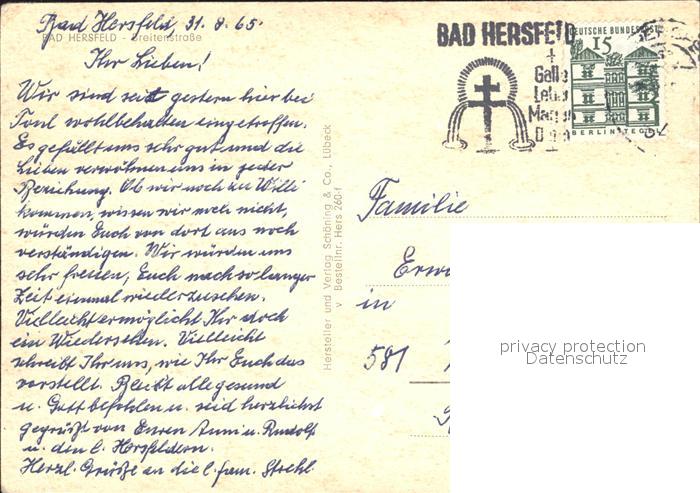 Bad Hersfeld 31.8.65.
BAD HERSFELD - Breitenstraße
Ihr Lieben!
Wir sind seit gestern hier bei
Toni wohlbehalten eingetroffen.
Es gefällt uns sehr gut und die
Lieben verwöhnen uns in jeder
Beziehung. Ob wir noch zu Willi
kommen, wissen wir noch nicht,
würden Euch von dort aus noch
verständigen. Wir würden uns
sehr freuen, Euch nach so langer
Zeit einmal wiederzusehen.
Vielleicht ermöglicht Ihr doch
ein Wiedersehen. Vielleicht
schreibt Ihr uns, wie Ihr Euch das
vorstellt. Bleibt alle gesund
u. Gott befohlen u. seid herzlichst
gegrüßt von Euren Anni u. Rudolf
u. den l. Hersfeldern.
Herzl. Grüße an die l. Fam. Strehl
Hersteller und Verlag Schöning & Co., Lübeck
v Bestellnr. Hers 260-f
BAD HERSFELD
+
Galle
Leber
Magen
Darm
+
DEUTSCHE BUNDESPOST
15
BERLIN TEGEL
Familie
in
581
privacy protection
Datenschutz